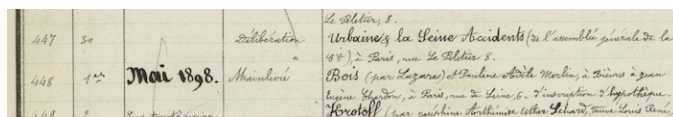 le Peletier, 8.
447 30 Délibération Urbaine & la Seine Accidents (de l'assemblée générale de la
Sté), à Paris, rue Le Peletier 8.
448 1er Mai 1898. Mainlevée Bois (par Lazare) et Pauline Adèle Merlin, à Bièvres à Jean
Eugène Chardon, à Paris, rue de Seine, 6 - d'inscription d'hypothèque.
449 2 Hrotoff (par Joséphine Arthémise Esther Senard, veuve Louis René